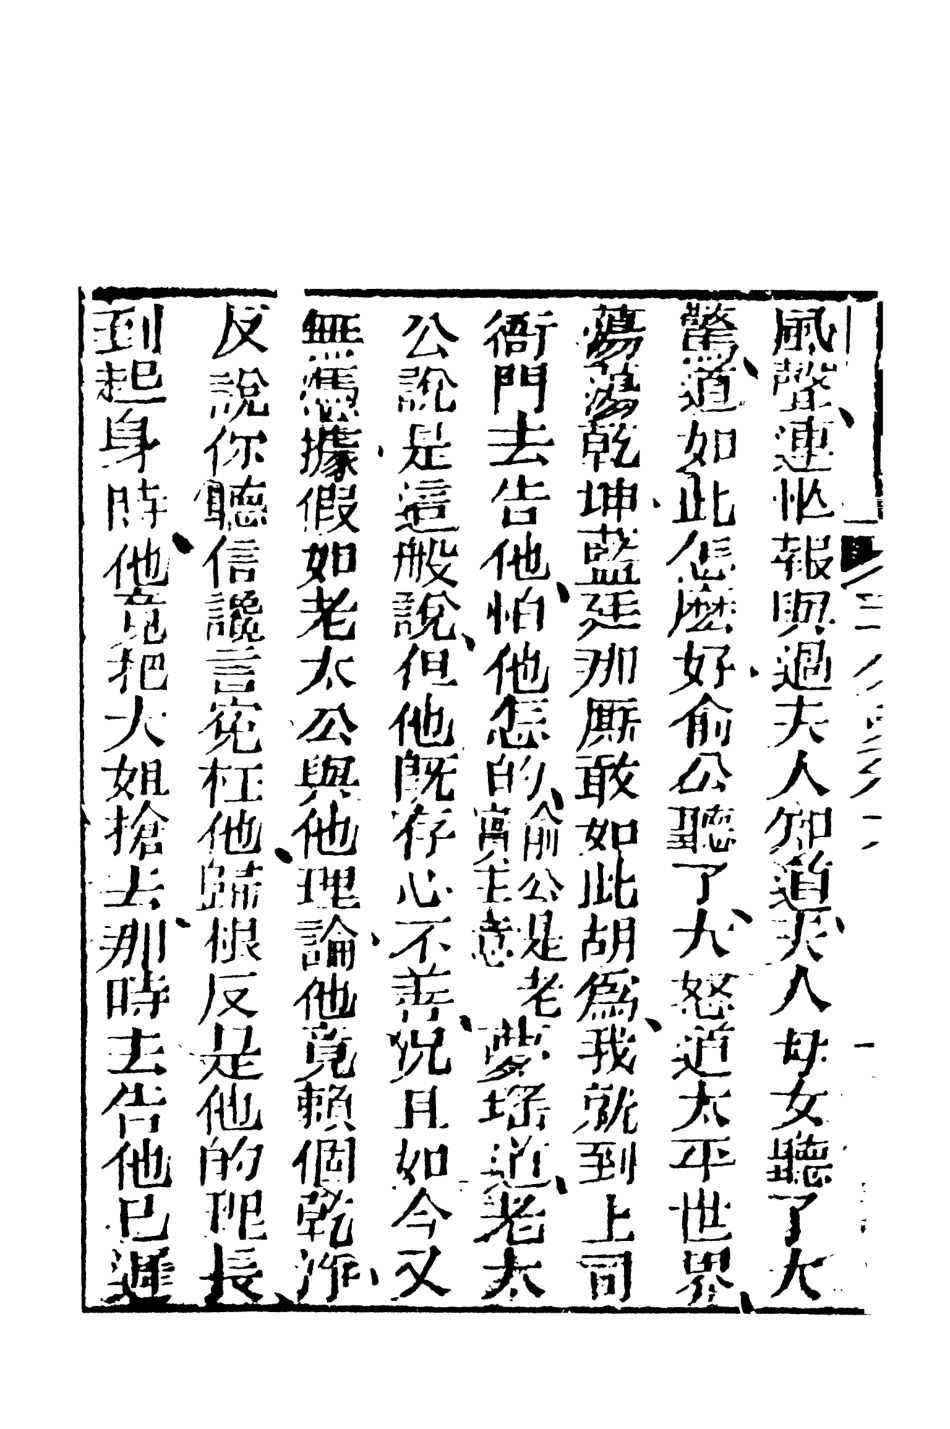 風聲連忙報與過夫人知道夫人母女聽了大
驚道如此怎麼好俞公聽了大怒道太平世界
蕩蕩乾坤藍廷那厮敢如此胡爲我就到上司
衙門去告他怕他怎的俞公是老寔主意夢瑶道老太
公說是這般說但他旣存心不善況且如今又
無憑據假如老太公與他理論他竟賴個乾淨
反說你聽信讒言寃枉他歸根反是他的理長
到起身時他竟把大姐搶去那時去告他已遲